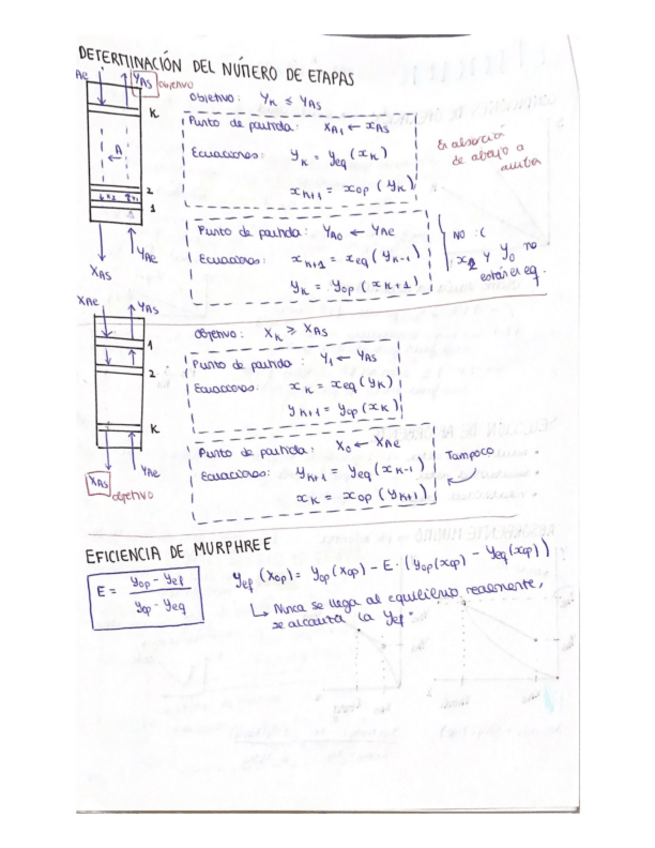 DETERMINACIÓN DEL NÚMERO DE ETAPAS
XAe
YAS objetivo
objetivo: YK ≤ YAS
K
Punto de partida: XA1 ← XAS
Ecuaciones: yK = yeq (xK)
xK+1 = xop (yK)
En absorción
de abajo a
arriba
A
2
1
YAe
XAS
Punto de partida: YA0 ← YAe
Ecuaciones: xK+1 = xeq (yK-1)
yK = yop (xK+1)
NO :(
x2 y y0 no
están el eq.
XAe
YAS
objetivo: XK ≥ XAS
1
2
Punto de partida: Y1 ← YAS
Ecuaciones: xK = xeq (yK)
yK+1 = yop (xK)
K
YAe
XAS
objetivo
Punto de partida: X0 ← XAe
Ecuaciones: yK+1 = yeq (xK-1)
xK = xop (yK+1)
Tampoco
EFICIENCIA DE MURPHREE
E = yop - yef / yop - yeq
yef (xop) = yop (xop) - E · (yop (xop) - yeq (xop))
↳ Nunca se llega al equilibrio realmente,
se alcanza la yef.